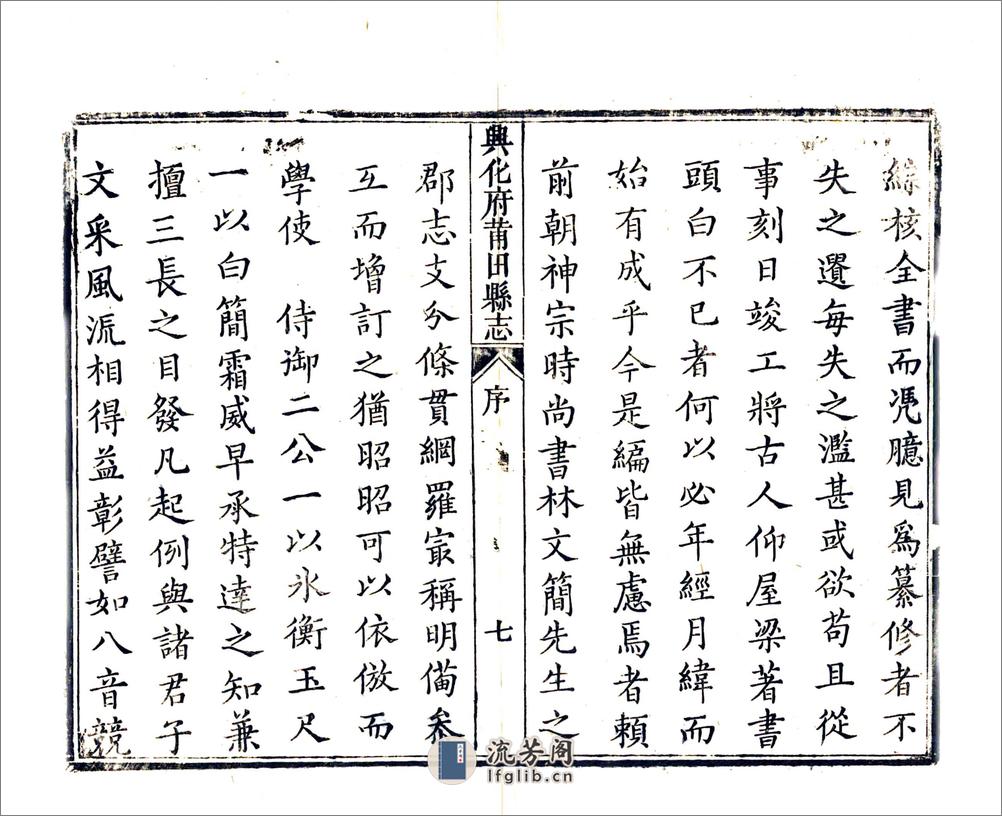 綜核全書而凴臆見爲纂修者不
失之遺每失之濫甚或欲苟且從
事刻日竣工將古人仰屋梁著書
頭白不已者何以必年經月緯而
始有成乎今是編皆無慮焉者頼
前朝神宗時尚書林文簡先生之
興化府莆田縣志
序
七
郡志支分條貫網羅㝡稱明備叅
互而增訂之猶昭昭可以依倣而
學使 侍御二公一以氷衡玉尺
一以白簡霜威早承特達之知兼
擅三長之目發凡起例與諸君子
文采風流相得益彰譬如八音競
流芳阁
lfglib.cn